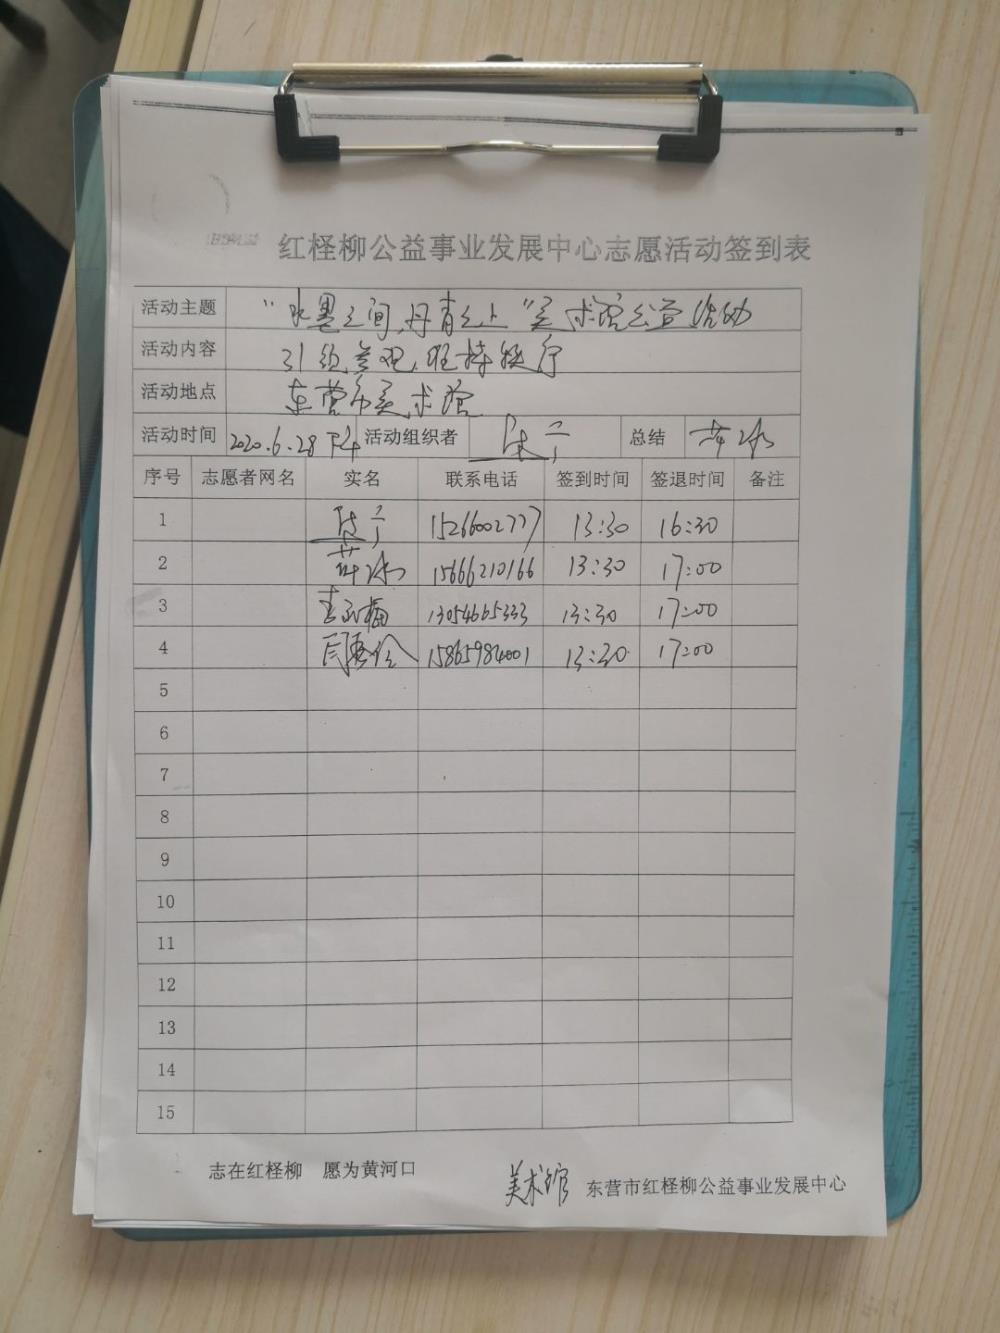 红柽柳公益事业发展中心志愿活动签到表
活动主题 "水墨之间,丹青之上"美术馆公益活动
活动内容 引领参观,维持秩序
活动地点 东营市美术馆
活动时间 2020.6.28下午 活动组织者 总结
序号 志愿者网名 实名 联系电话 签到时间 签退时间 备注
1 15266002777 13:30 16:30
2 15666210166 13:30 17:00
3 13054665333 13:30 17:00
4 15865984001 13:30 17:00
5
6
7
8
9
10
11
12
13
14
15
志在红柽柳 愿为黄河口
美术馆 东营市红柽柳公益事业发展中心